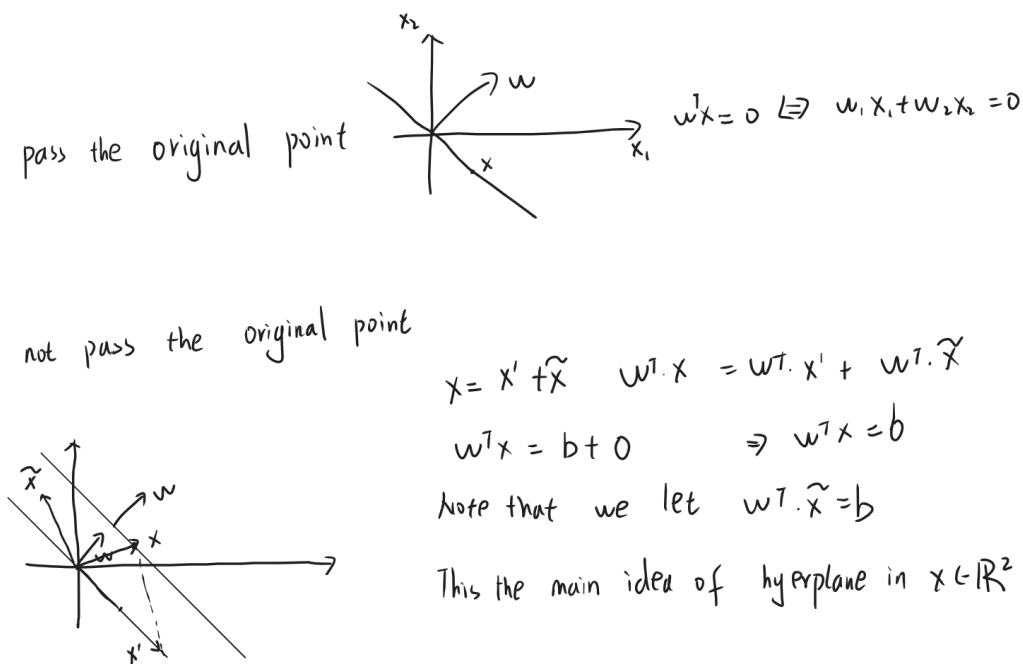 x₂
w
pass the original point
x
x₁
wᵀx = 0 ⇔ w₁x₁ + w₂x₂ = 0
not pass the original point
x = x' + x̃ wᵀ·x = wᵀ·x' + wᵀ·x̃
wᵀx = b + 0 ⇒ wᵀx = b
Note that we let wᵀ·x̃ = b
This the main idea of hyerplane in x ∈ ℝ²
x̃
w
x
w
x'